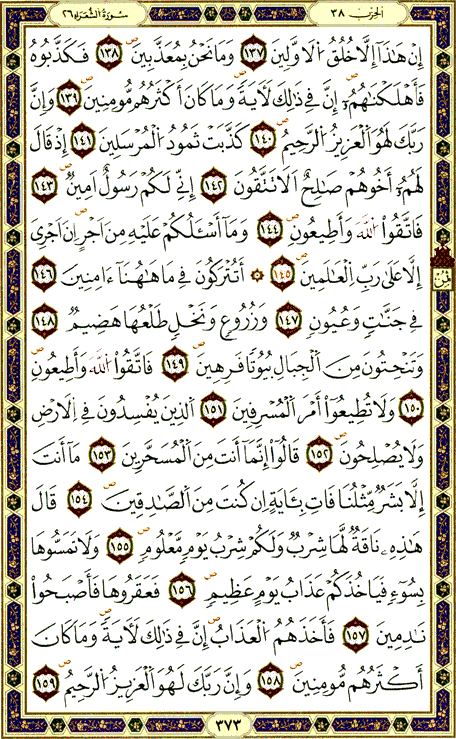 الحزب ٣٨
سُورَةُ الشُّعَرَاء ٢٦
إِنْ هَٰذَآ إِلَّا خُلُقُ اُ۬لَاوَّلِينَ ١٣٧ وَمَا نَحْنُ بِمُعَذَّبِينَ ١٣٨ فَكَذَّبُوهُ
فَأَهْلَكْنَٰهُمُۥٓ إِنَّ فِے ذَٰلِكَ لَأٓيَةٗ وَمَا كَانَ أَكْثَرُهُم مُّومِنِينَ ١٣٩ وَإِنَّ
رَبَّكَ لَهُوَ اَ۬لْعَزِيزُ اُ۬لرَّحِيمُ ١٤٠ كَذَّبَتْ ثَمُودُ اُ۬لْمُرْسَلِينَ ١٤١ إِذْ قَالَ
لَهُمُۥٓ أَخُوهُمْ صَٰلِحٌ اَلَا تَتَّقُونَ ١٤٢ إِنِّے لَكُمْ رَسُولٌ اَمِينٞ ١٤٣
فَاتَّقُوا۟ اُ۬للَّهَ وَأَطِيعُونِ ١٤٤ وَمَآ أَسْـَٔلُكُمْ عَلَيْهِ مِنَ اَجْرٍ اِنَ اَجْرِيَ
إِلَّا عَلَىٰ رَبِّ اِ۬لْعَٰلَمِينَ ١٤٥ ۞ أَتُتْرَكُونَ فِے مَا هَٰهُنَآ ءَامِنِينَ ١٤٦
فِے جَنَّٰتٖ وَعُيُونٖ ١٤٧ وَزُرُوعٖ وَنَخْلٖ طَلْعُهَا هَضِيمٞ ١٤٨
وَتَنْحِتُونَ مِنَ اَ۬لْجِبَالِ بُيُوتاٗ فَرِهِينَ ١٤٩ فَاتَّقُوا۟ اُ۬للَّهَ وَأَطِيعُونِ
١٥٠ وَلَا تُطِيعُوٓا۟ أَمْرَ اَ۬لْمُسْرِفِينَ ١٥١ اَ۬لذِينَ يُفْسِدُونَ فِے اِ۬لَارْضِ
وَلَا يُصْلِحُونَ ١٥٢ قَالُوٓا۟ إِنَّمَآ أَنتَ مِنَ اَ۬لْمُسَحَّرِينَ ١٥٣ مَآ أَنتَ
إِلَّا بَشَرٞ مِّثْلُنَا فَاتِ بِـَٔايَةٍ اِن كُنتَ مِنَ اَ۬لصَّٰدِقِينَ ١٥٤ قَالَ
هَٰذِهِۦ نَاقَةٞ لَّهَا شِرْبٞ وَلَكُمْ شِرْبُ يَوْمٖ مَّعْلُومٖ ١٥٥ وَلَا تَمَسُّوهَا
بِسُوٓءٖ فَيَاخُذَكُمْ عَذَابُ يَوْمٍ عَظِيمٖ ١٥٦ فَعَقَرُوهَا فَأَصْبَحُوا۟
نَٰدِمِينَ ١٥٧ فَأَخَذَهُمُ اُ۬لْعَذَابُ إِنَّ فِے ذَٰلِكَ لَأٓيَةٗ وَمَا كَانَ
أَكْثَرُهُم مُّومِنِينَ ١٥٨ وَإِنَّ رَبَّكَ لَهُوَ اَ۬لْعَزِيزُ اُ۬لرَّحِيمُ ١٥٩
ثمن
٣٧٣